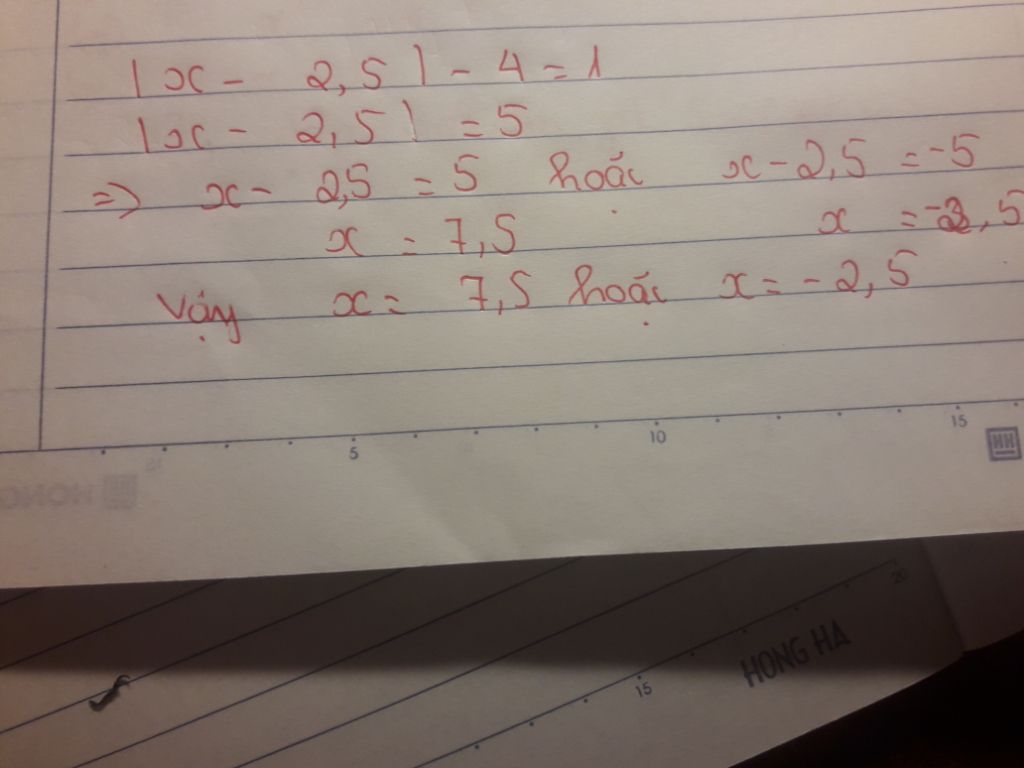 |x - 2,5| - 4 = 1
|x - 2,5| = 5
=> x - 2,5 = 5 hoặc x - 2,5 = -5
x = 7,5 x = -2,5
Vậy x = 7,5 hoặc x = -2,5
5 10 15
HH
20
15
HONG HA